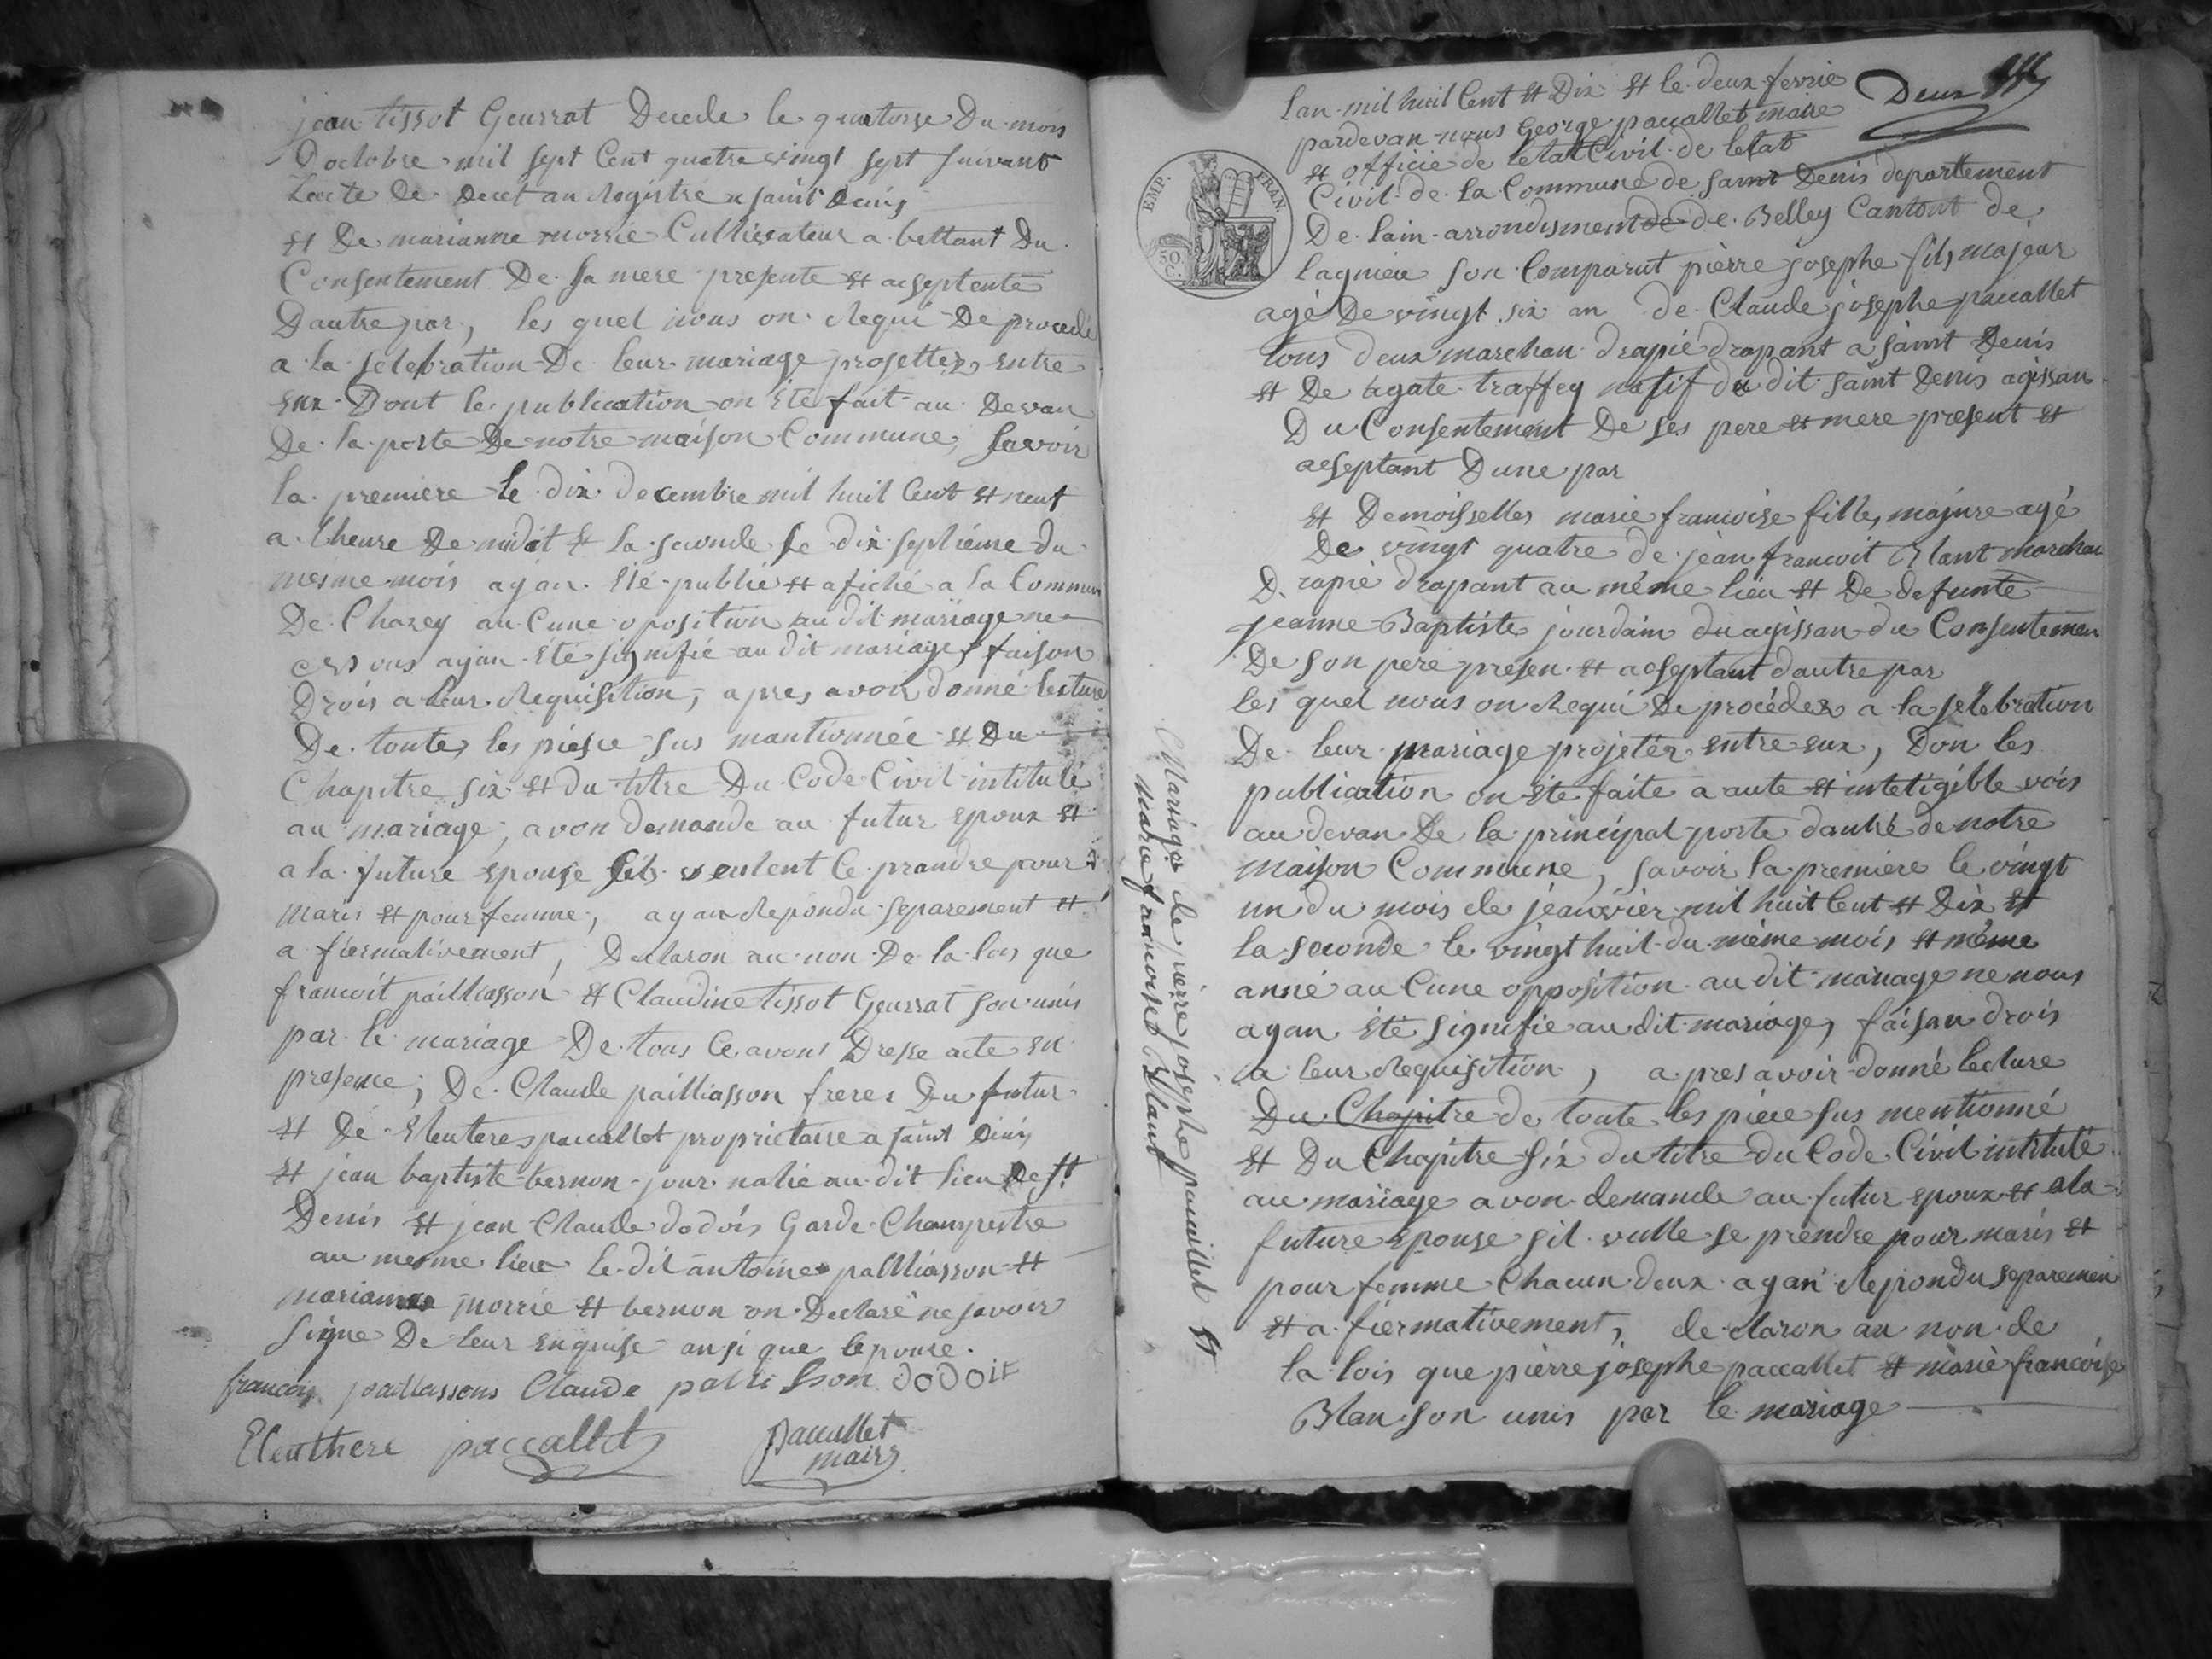 jean tissot Geurrat Decede le quatorse Du mois
Doctobre mil sept Cent quatre vingt sept suivant
Lacte de decet au Registre a saint Denis
et De marianne morrie Cultivateur a bettant Du
Consentement De sa mere presente et acseptente
Dautre par, les quel nous on Requi De procede
a la selebration De leur mariage projetter entre
eux Dont le publication on été fait au Devan
De la porte De notre maison Commune, savoir
la premiere le dix decembre mil huit Cent et neuf
a lheure De midit et la seconde le dix septième du
mesme mois ayan été publié et afiché a la Commun
De Chazey au Cune oposition au dit mariage ne
nous ayan été signifié au dit mariage, faison
Drois a leur Requisition, apres avoir donné lecture
De toutes les piesse sus mantionnée et Du
Chapitre six et du titre Du Code Civil intitulé
au mariage, avon demande au futur epoux et
a la future epouse sils veulent ce prandre pour
maris et pour femme, ayan Repondu separement et
a fiermativement, Declaron au non De la lois que
francoit pailliasson et Claudine tissot Geurrat son unis
par le mariage De tous ce avons Dresse acte en
presence, De Claude pailliasson freres Du futur
et De Eleuteres paccallet proprietaire a saint Dinis
et jean baptiste bernon jour nalié au dit lieu De st
Denis et jean Claude dodois Garde Champestre
au mesme lieu le dit antoine pallliasson et
marianne morrie et bernon on Declaré ne savoir
signe De leur enquise ansi que lepouse.
francois paillassons Claude palliasson dodoit
Eleuthere paccallet paccallet
maire
Deux
Lan mil huit Cent et Dix et le deux fevrie
pardevan nous George paccallet maire
et officie de letat Civil de letat
Civil de la Commune de saint Denis departement
De lain arrondisment de de Belley Cantont de
EMP. FRAN.
50 C.
lagnieu son Comparut pièrre josephe fils majeur
agé De vingt six an de Claude josephe paccallet
tous deux marchan drapié drapant a saint Denis
et De agate traffey natif du dit saint Denis agissan
Du Consentement De ses pere et mere present et
acseptant Dune par
et Demoisselles marie francoise fille, majure agé
De vingt quatre de jean francoit Blant marchan
Drapié drapant au même lieu et De defunte
jeanne Baptiste jourdain du agissan du Consentemen
De son pere presen et acseptant dautre par
les quel nous on Requi De procéder a la selebration
De leur mariage projetér entre eux, Don les
publication on été faite a aute et inteligible vois
au devan De la principal porte dantré de notre
maison Commune, savoir la premiere le vingt
un du mois de jeanvier mil huit Cent et Dix et
la seconde le vingt huit du même mois et même
anné au Cune opposition au dit mariage ne nous
ayan été signifie au dit mariage, faisan drois
a leur Requisition, a pres avoir donné lecture
Du Chapitre de toute les piece sus mentionné
et Du Chapitre six du titre du Code Civil intitulé
au mariage avon demande au futur epoux et a la
future epouse sil vulle se prendre pour maris et
pour femme Chacun deux ayan Repondu separemen
et a fiermativement, de claron au non de
la lois que pièrre josephe paccallet et marie francoise
Blan son unis par le mariage
Mariage de pièrre josephe paccallet et
marie francoise Blant